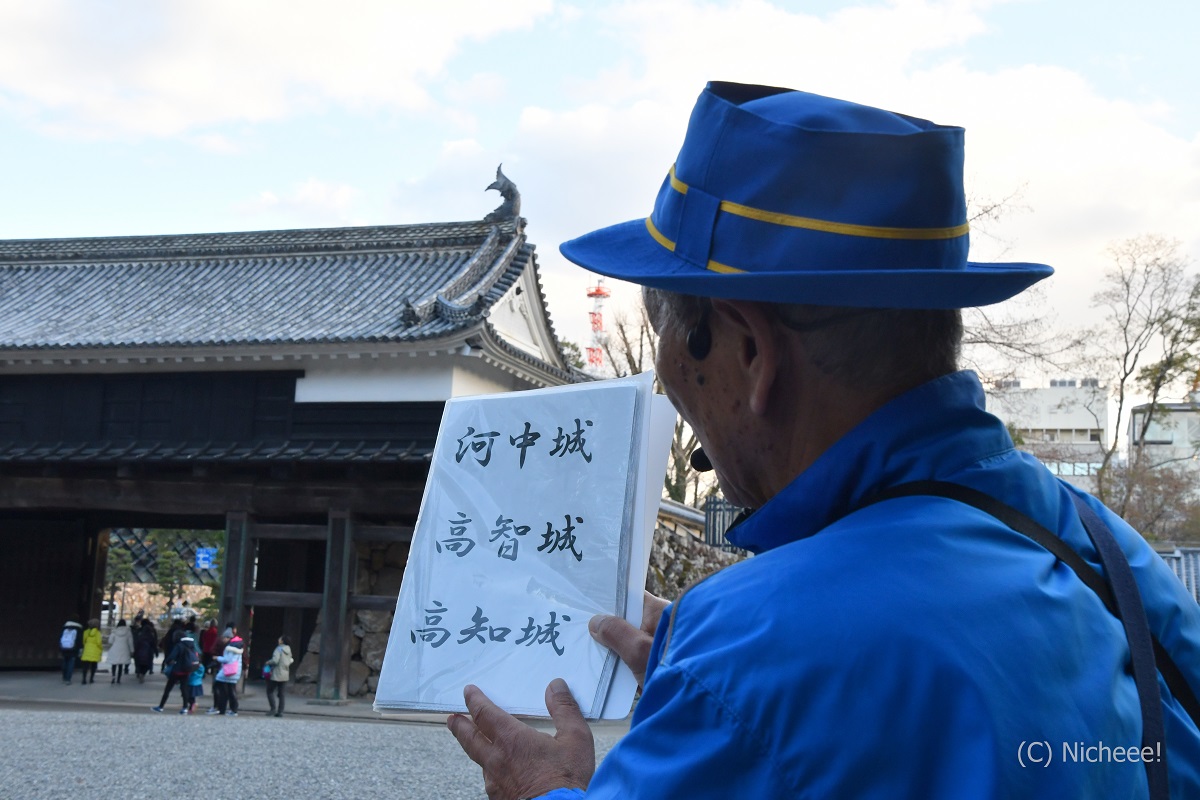 河中城
高智城
高知城
(C) Nicheee!